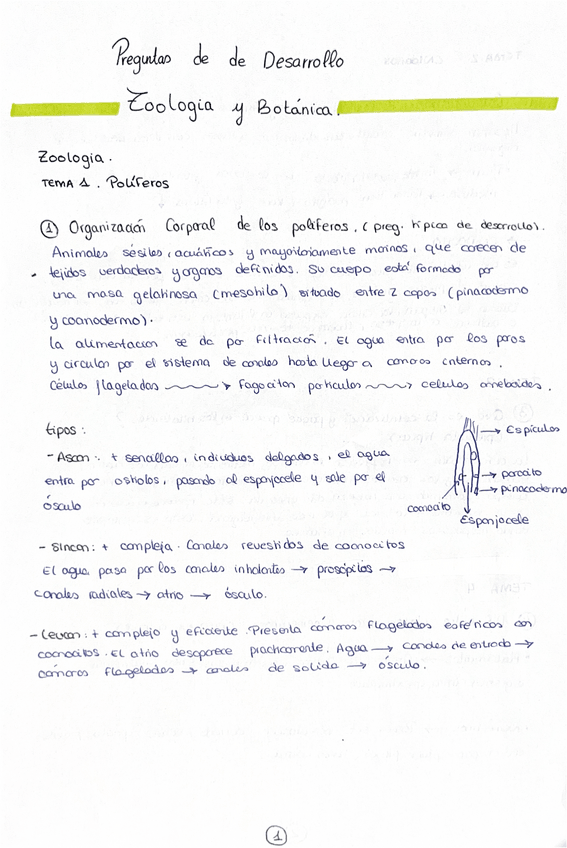 Preguntas de de Desarrollo
Zoologia y Botánica.
Zoologia.
TEMA 1. Políferos
① Organización Corporal de los políferos. (preg. típica de desarrollo).
Animales sésiles, acuáticos y mayoritariamente marinos, que carecen de
tejidos verdaderos y organos definidos. Su cuepo está formado por
una masa gelatinosa (mesohilo) situado entre 2 capas (pinacodermo
y coanodermo).
La alimentacion se da por filtración. El agua entra por los poros
y circula por el sistema de canales hasta llegar a camaras internas.
Células flageladas → fagocitan particulas → celulas ameboides.
tipos:
- Ascon: + sencillas, individuos delgados, el agua
entra por ostiolos, pasando al esponjocele y sale por el
ósculo
Espículas
porocito
pinacodermo
coanocito
Esponjocele
- Sincon: + compleja. Canales revestidos de coanocitos
El agua pasa por los canales inhalantes → prosópilos →
canales radiales → atrio → ósculo.
- Leucon: + complejo y eficiente. Presenta cámaras flageladas esféricas con
coanocitos. El atrio desaparece practicamente. Agua → canales de entrada →
cámaras flageladas → canales de salida → ósculo.
1